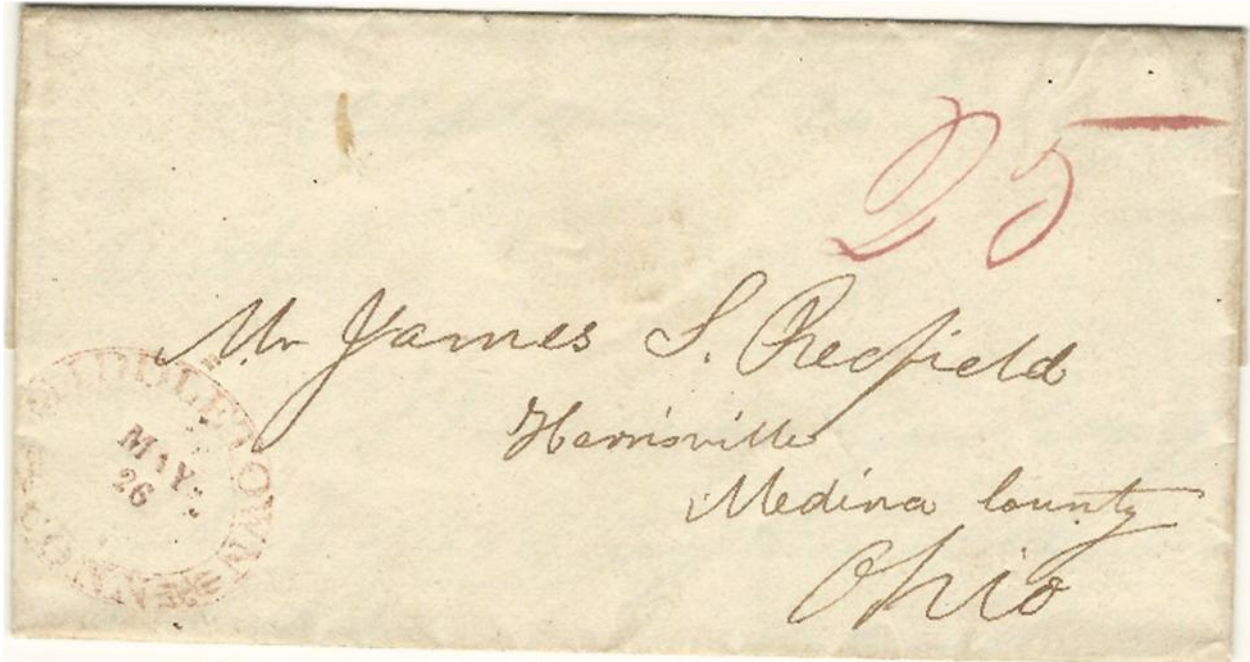 25
Mr James S. Redfield
Harrisville
Medina County
Ohio
MIDDLETOWN
MAY
26
CON